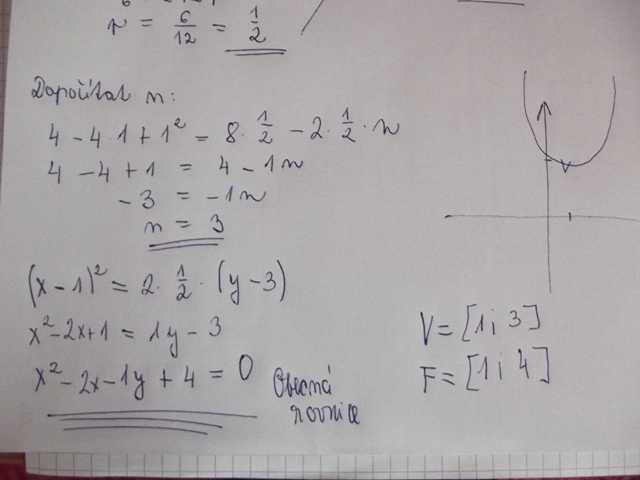 r = 6/12 = 1/2
Dopočítat n:
4 - 4·1 + 1² = 8·1/2 - 2·1/2·n
4 - 4 + 1 = 4 - 1n
-3 = -1n
n = 3
V
(x - 1)² = 2·1/2·(y - 3)
x² - 2x + 1 = 1y - 3
x² - 2x - 1y + 4 = 0
Obecná
rovnice
V = [1; 3]
F = [1; 4]